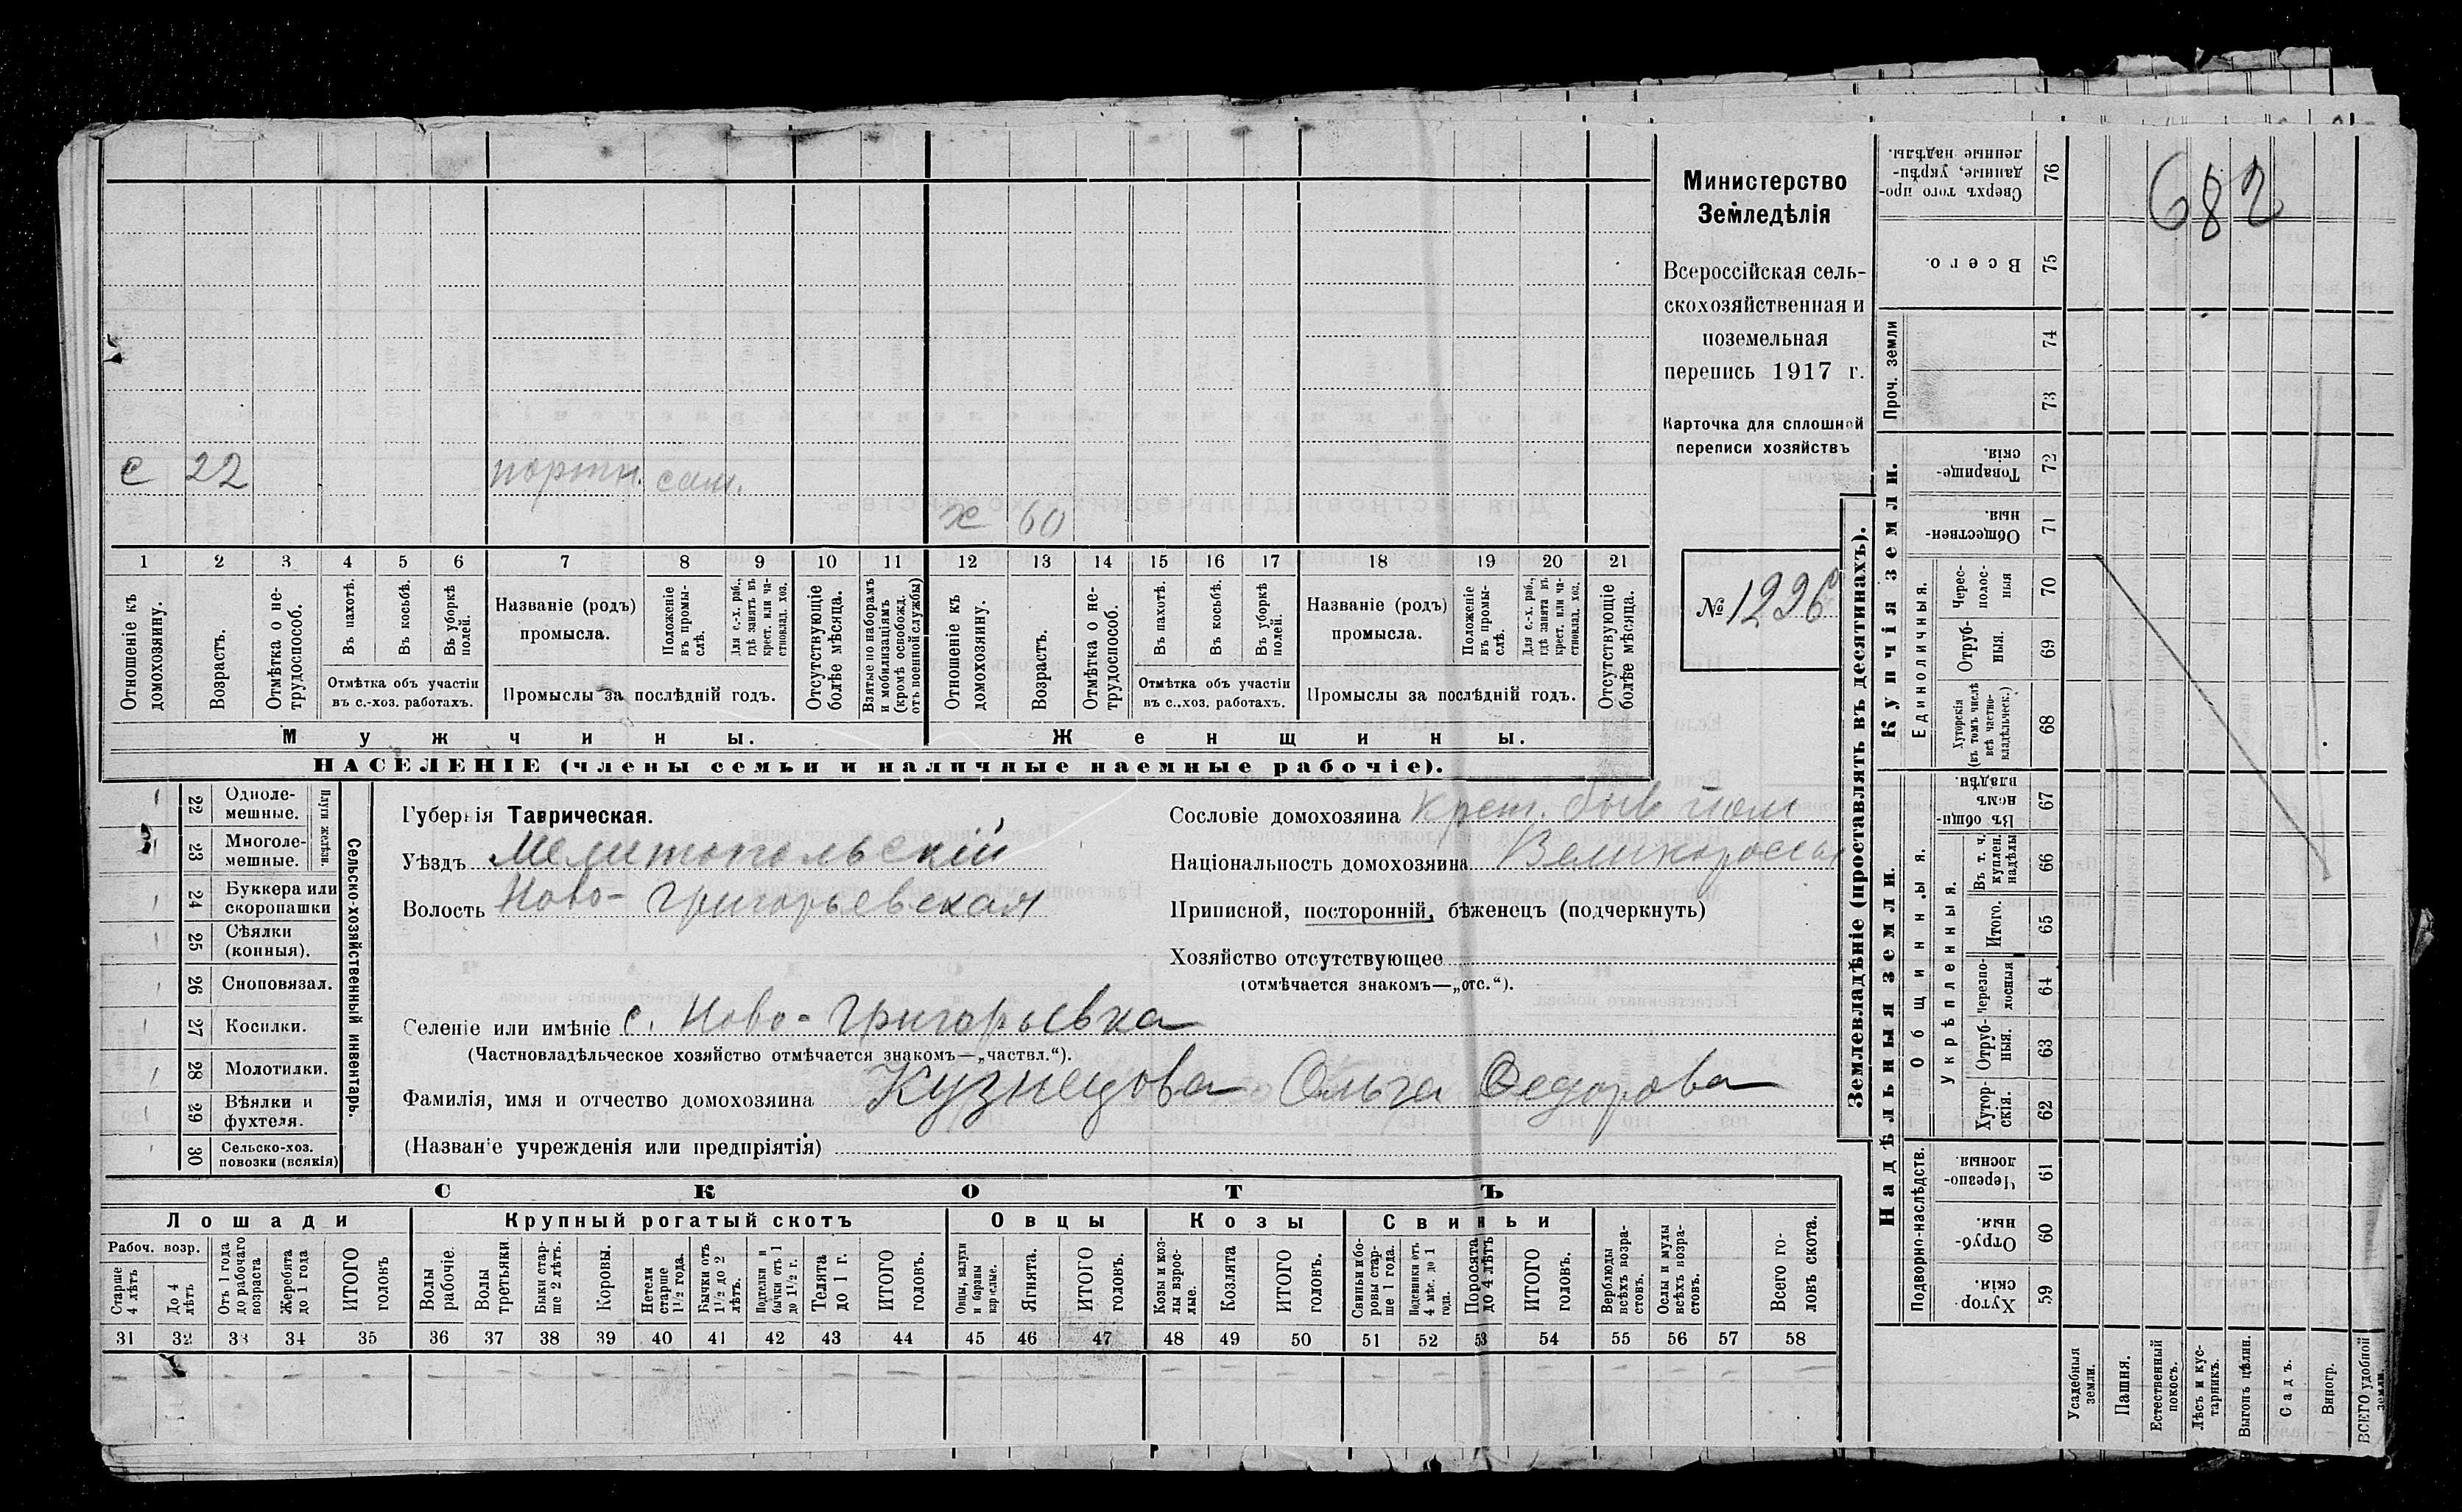 682
Министерство
Земледѣлія
Всероссійская сель-
скохозяйственная и
поземельная
перепись 1917 г.
Карточка для сплошной
переписи хозяйствъ
№ 1226
с 22 портн. сам.
х 60
1 2 3 4 5 6 7 8 9 10 11 12 13 14 15 16 17 18 19 20 21
Отношеніе къ домохозяину.
Возрастъ.
Отмѣтка о не-трудоспособ.
Въ пахотѣ.
Въ косьбѣ.
Въ уборкѣ полей.
Отмѣтка объ участіи
въ с.-хоз. работахъ.
Названіе (родъ)
промысла.
Положеніе въ промы-слѣ.
Для с.-х. раб., гдѣ занятъ въ крест. или ча-стновлад. хоз.
Промыслы за послѣдній годъ.
Отсутствующіе болѣе мѣсяца.
Взятые по наборамъ и мобилизаціямъ (кромѣ освобожд. отъ военной службы)
Отношеніе къ домохозяину.
Возрастъ.
Отмѣтка о не-трудоспособ.
Въ пахотѣ.
Въ косьбѣ.
Въ уборкѣ полей.
Отмѣтка объ участіи
въ с.-хоз. работахъ.
Названіе (родъ)
промысла.
Положеніе въ промы-слѣ.
Для с.-х. раб., гдѣ занята въ крест. или ча-стновлад. хоз.
Промыслы за послѣдній годъ.
Отсутствующіе болѣе мѣсяца.
Мужчины.
Женщины.
НАСЕЛЕНІЕ (члены семьи и наличные наемные рабочіе).
Сельско-хозяйственный инвентарь.
Плуги желѣзн.
22 Одноле-мешные.
23 Многоле-мешные.
24 Буккера или скоропашки
25 Сѣялки (конныя).
26 Сноповязал.
27 Косилки.
28 Молотилки.
29 Вѣялки и фухтеля.
30 Сельско-хоз. повозки (всякія)
Губернія Таврическая.
Уѣздъ Мелитопольскій
Волость Ново-Григорьевская
Сословіе домохозяина Крест. быв пом
Національность домохозяина Великороссы
Приписной, посторонній, бѣженецъ (подчеркнуть)
Хозяйство отсутствующее
(отмѣчается знакомъ—„отс.“).
Селеніе или имѣніе с. Ново-Григорьевка
(Частновладѣльческое хозяйство отмѣчается знакомъ—„частвл.“).
Фамилія, имя и отчество домохозяина Кузнецова Ольга Федорова
(Названіе учрежденія или предпріятія)
СКОТЪ
Лошади
Крупный рогатый скотъ
Овцы
Козы
Свиньи
Рабоч. возр.
Старше 4 лѣтъ
До 4 лѣтъ
Отъ 1 года до рабочаго возраста
Жеребята до 1 года
ИТОГО головъ
Волы рабочіе.
Волы третьяки
Быки стар-ше 2 лѣтъ.
Коровы.
Нетели старше 1½ года.
Бычки отъ 1½ до 2 лѣтъ.
Подтелки и бычки отъ 1 до 1½ г.
Телята до 1 г.
ИТОГО головъ.
Овцы, валухи и бараны взрослые.
Ягнята.
ИТОГО головъ.
Козы и коз-лы взрос-лые.
Козлята
ИТОГО головъ.
Свиньи и бо-ровы стар-ше 1 года.
Подсвинки отъ 4 мѣс. до 1 года.
Поросята до 4 лѣтъ
ИТОГО головъ.
Верблюды всѣхъ возра-стовъ.
Ослы и мулы всѣхъ возра-стовъ.
Всего го-ловъ скота.
31 32 33 34 35 36 37 38 39 40 41 42 43 44 45 46 47 48 49 50 51 52 53 54 55 56 57 58
Землевладѣніе (проставлять въ десятинахъ).
Сверхъ того про-данные, укрѣп-ленные надѣлы. 76
Всего. 75
Проч. земли
74
73
Купчія земли.
Товарище-скія. 72
Обществен-ныя. 71
Единоличныя.
Черес-полос-ныя 70
Отруб-ныя. 69
Хуторскія (въ томъ числѣ всѣ частно-владѣльческ.) 68
Надѣльныя земли.
Общинныя.
Въ общи-номъ владѣн. 67
Укрѣпленныя.
Въ т. ч. куплен. надѣлы 66
Итого. 65
Черезпо-лосныя 64
Отруб-ныя. 63
Хутор-скія. 62
Подворно-наслѣдств.
Черезпо-лосныя. 61
Отруб-ныя. 60
Хутор-скія. 59
Усадебныя земли.
Пашня.
Естественный покосъ.
Лѣсъ и кус-тарникъ.
Выгонъ цѣлин.
Садъ.
Виногр.
ВСЕГО удобной земли.